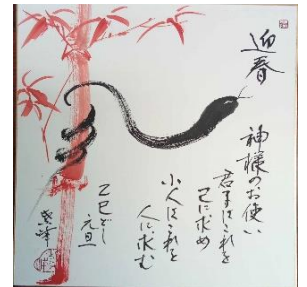 迎春
神様のお使い
君子はこれを
己に求め
小人はこれを
人に求む
乙巳どし
元旦